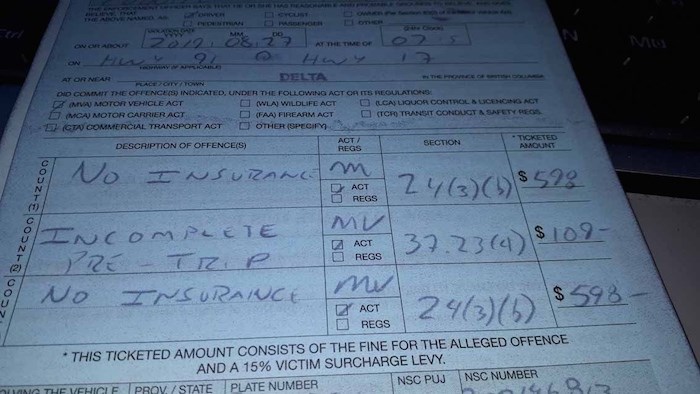 DRIVER CYCLIST
PEDESTRIAN PASSENGER OTHER
YYYY MM DD
ON OR ABOUT 2019 08 27 AT THE TIME OF 07
ON HWY 91 @ HWY 17
AT OR NEAR DELTA IN THE PROVINCE OF BRITISH COLUMBIA
PLACE / CITY / TOWN
DID COMMIT THE OFFENCE(S) INDICATED, UNDER THE FOLLOWING ACT OR ITS REGULATIONS:
(MVA) MOTOR VEHICLE ACT (WLA) WILDLIFE ACT (LCA) LIQUOR CONTROL & LICENCING ACT
(MCA) MOTOR CARRIER ACT (FAA) FIREARM ACT (TCR) TRANSIT CONDUCT & SAFETY REGS.
(CTA) COMMERCIAL TRANSPORT ACT OTHER (SPECIFY)
DESCRIPTION OF OFFENCE(S) ACT / REGS SECTION * TICKETED AMOUNT
COUNT (1) NO INSURANCE M ACT REGS 24(3)(b) $ 598
COUNT (2) INCOMPLETE PRE-TRIP MV ACT REGS 37.23(4) $ 109-
COUNT NO INSURAINCE MV ACT REGS 24(3)(b) $ 598-
* THIS TICKETED AMOUNT CONSISTS OF THE FINE FOR THE ALLEGED OFFENCE
AND A 15% VICTIM SURCHARGE LEVY.
THE VEHICLE PROV. / STATE PLATE NUMBER NSC PUJ NSC NUMBER